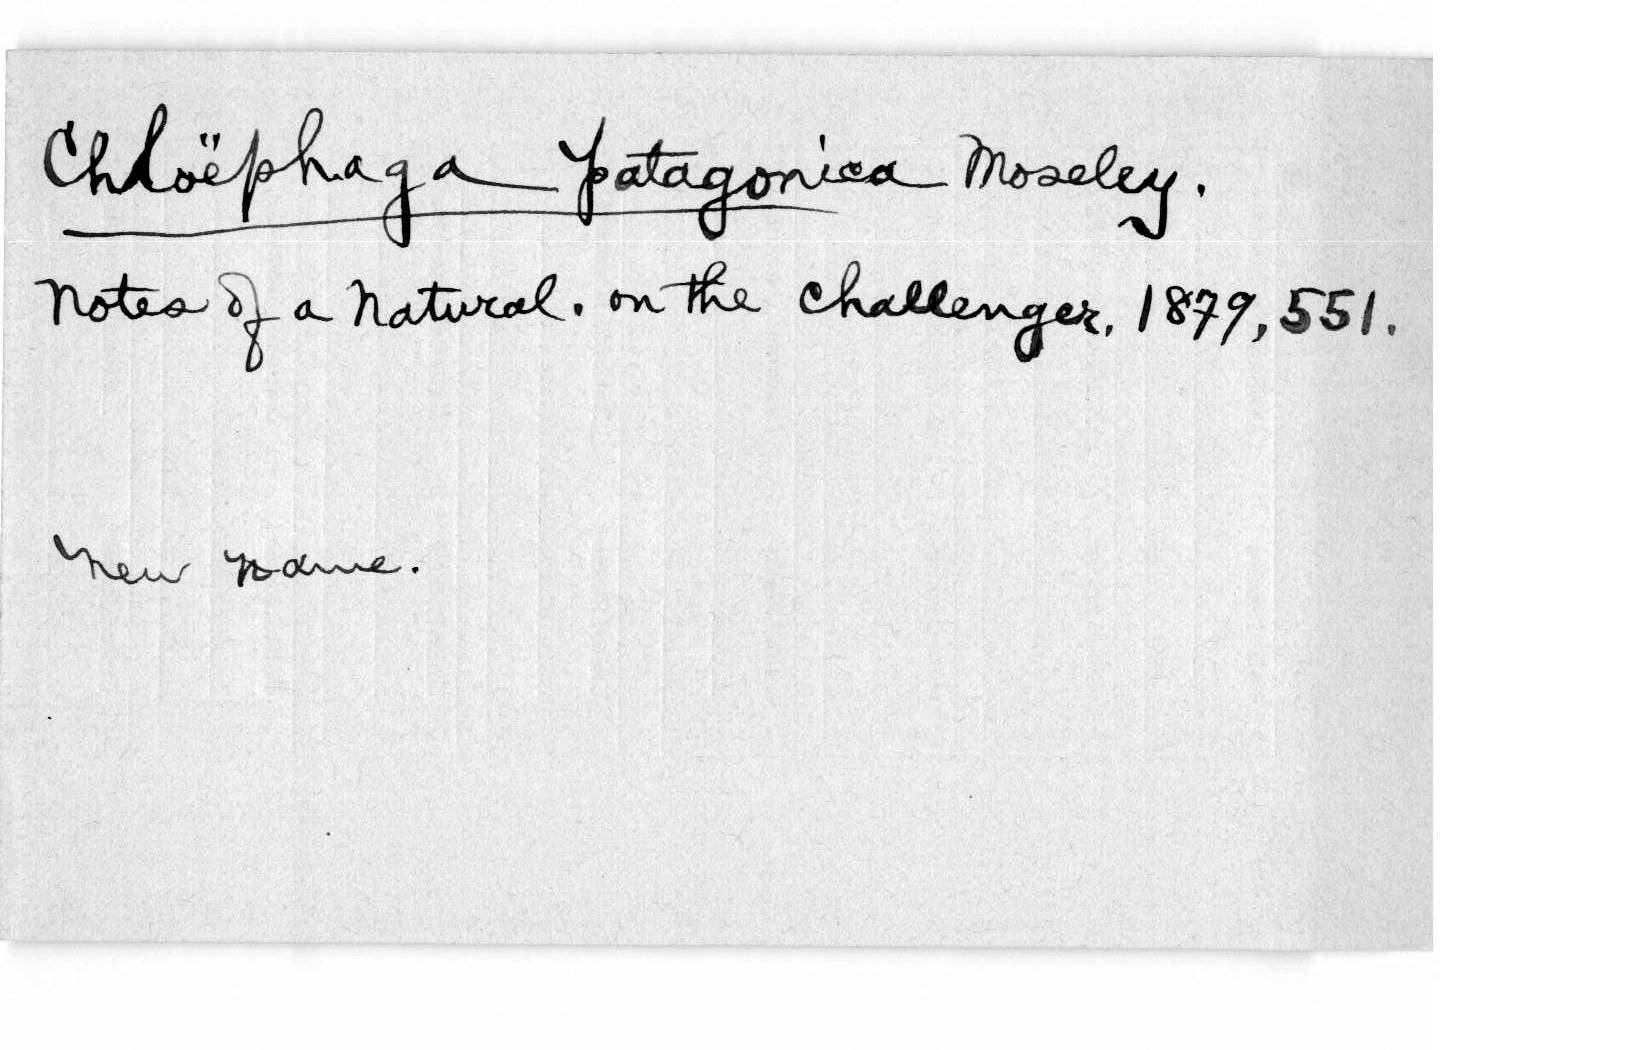 Chloëphaga patagonica Moseley.
Notes of a Natural. on the Challenger, 1879, 551.
New name.